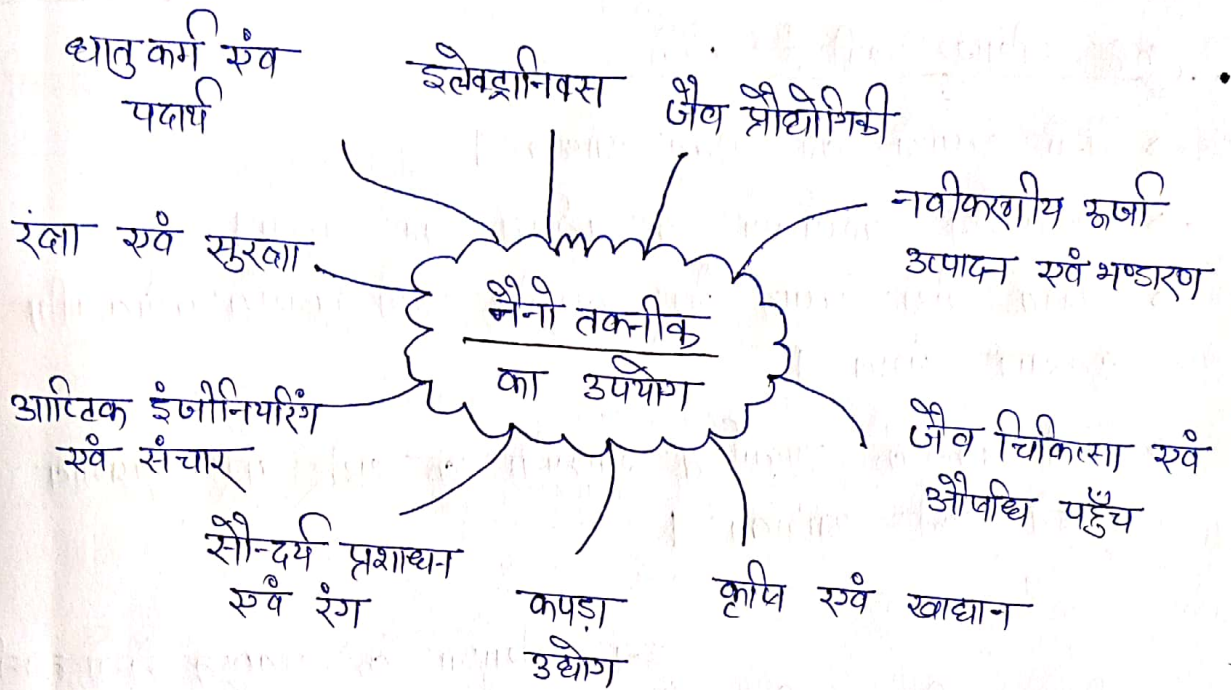 धातु कर्म एंव
पदार्थ
इलेक्ट्रानिक्स
जैव प्रौद्योगिकी
नवीकरणीय ऊर्जा
उत्पादन एवं भण्डारण
रक्षा एवं सुरक्षा
नैनो तकनीक
का उपयोग
आप्टिक इंजीनियरिंग
एवं संचार
जैव चिकित्सा एवं
औषधि पहुँच
सौन्दर्य प्रशाधन
एवं रंग
कपड़ा
उद्योग
कृषि एवं खाद्यान